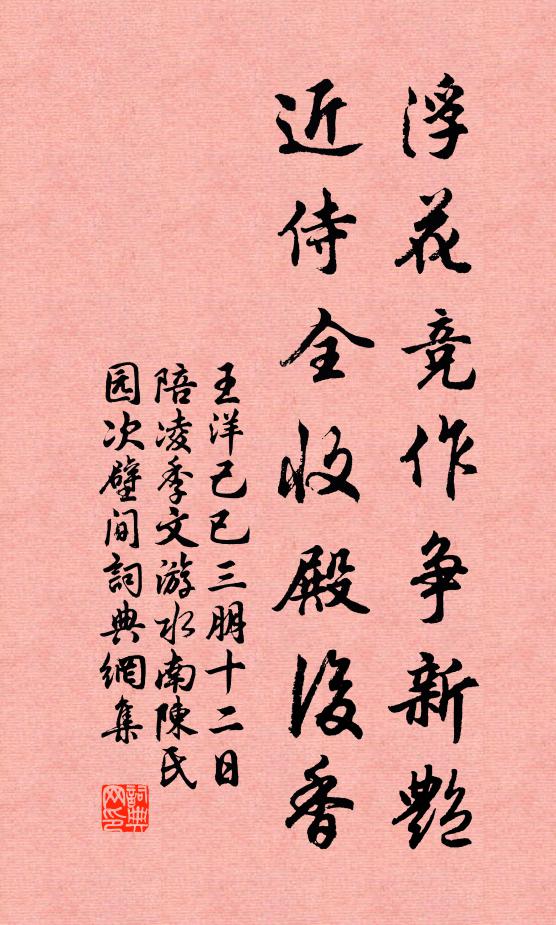 浮花竞作争新艷
近侍全收殿後香
王洋己巳三朋十二日
陪凌季文游水南陳氏
园次壁间詞典網集
詞典网印